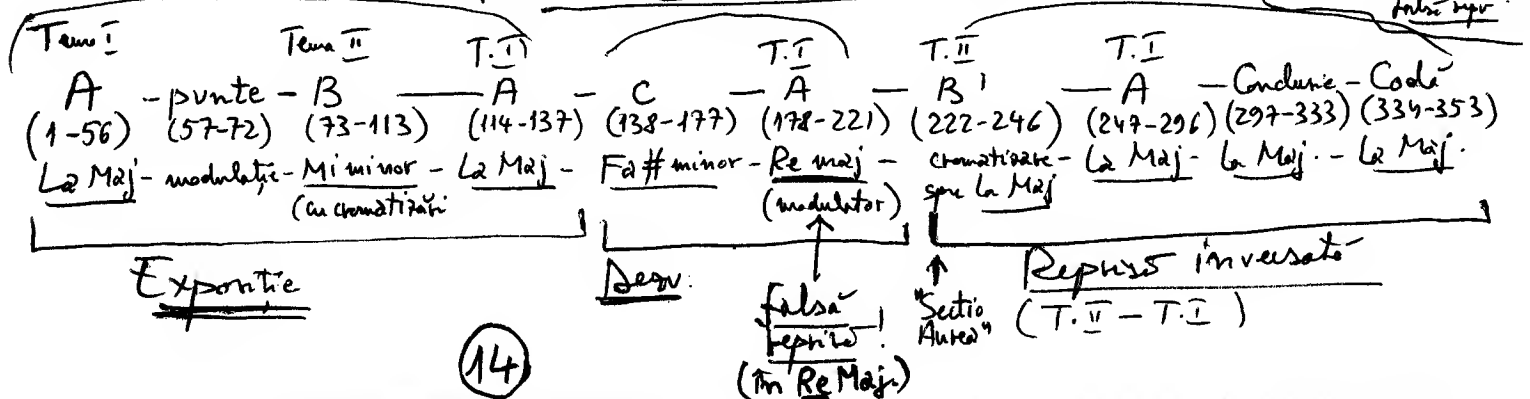 falsă repr.
Tema I Tema II T.I T.I T.II T.I
A - punte - B — A - C — A - B' — A - Concluzie - Codă
(1-56) (57-72) (73-113) (114-137) (138-177) (178-221) (222-246) (247-296) (297-333) (334-353)
La Maj - modulație - Mi minor - La Maj - Fa# minor - Re maj - cromatizare - La Maj - La Maj. - La Maj.
(cu cromatizări (modulator) spre La Maj
Expoziție Dezv. falsă repriză! (în Re Maj.) "Sectio Aurea" Repriză inversată
(T.II - T.I)
14